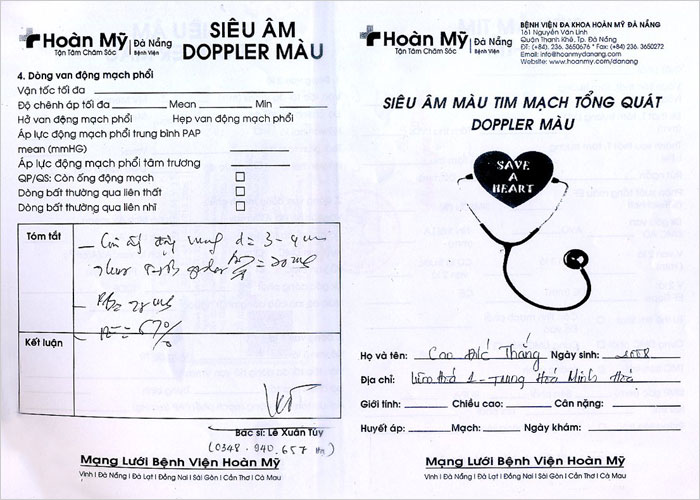 Hoàn Mỹ | Đà Nẵng
Tận Tâm Chăm Sóc Bệnh Viện
SIÊU ÂM
DOPPLER MÀU
4. Dòng van động mạch phổi
Vận tốc tối đa
Độ chênh áp tối đa Mean Min
Hở van động mạch phổi Hẹp van động mạch phổi
Áp lực động mạch phổi trung bình PAP
mean (mmHG)
Áp lực động mạch phổi tâm trương
QP/QS: Còn ống động mạch
Dòng bất thường qua liên thất
Dòng bất thường qua liên nhĩ
Tóm tắt
- Còn ống động d = 3-4
67%
Kết luận
Bác sĩ: Lê Xuân Túy
(0348.940.657)
Mạng Lưới Bệnh Viện Hoàn Mỹ
Vinh | Đà Nẵng | Đà Lạt | Đồng Nai | Sài Gòn | Cần Thơ | Cà Mau
Hoàn Mỹ | Đà Nẵng
Tận Tâm Chăm Sóc Bệnh Viện
BỆNH VIỆN ĐA KHOA HOÀN MỸ ĐÀ NẴNG
161 Nguyễn Văn Linh
Quận Thanh Khê, Tp. Đà Nẵng
ĐT: (+84). 236. 3650676 * Fax: (+84). 236. 3650272
Email: info@hoanmydanang.com
Website: www.hoanmy.com/danang
SIÊU ÂM MÀU TIM MẠCH TỔNG QUÁT
DOPPLER MÀU
SAVE
A
HEART
Họ và tên: Cao Đức Thắng Ngày sinh: 2008
Địa chỉ: 1 - Trung Hoá Minh Hoá
Giới tính: Chiều cao: Cân nặng:
Huyết áp: Mạch: Ngày khám:
Mạng Lưới Bệnh Viện Hoàn Mỹ
Vinh | Đà Nẵng | Đà Lạt | Đồng Nai | Sài Gòn | Cần Thơ | Cà Mau